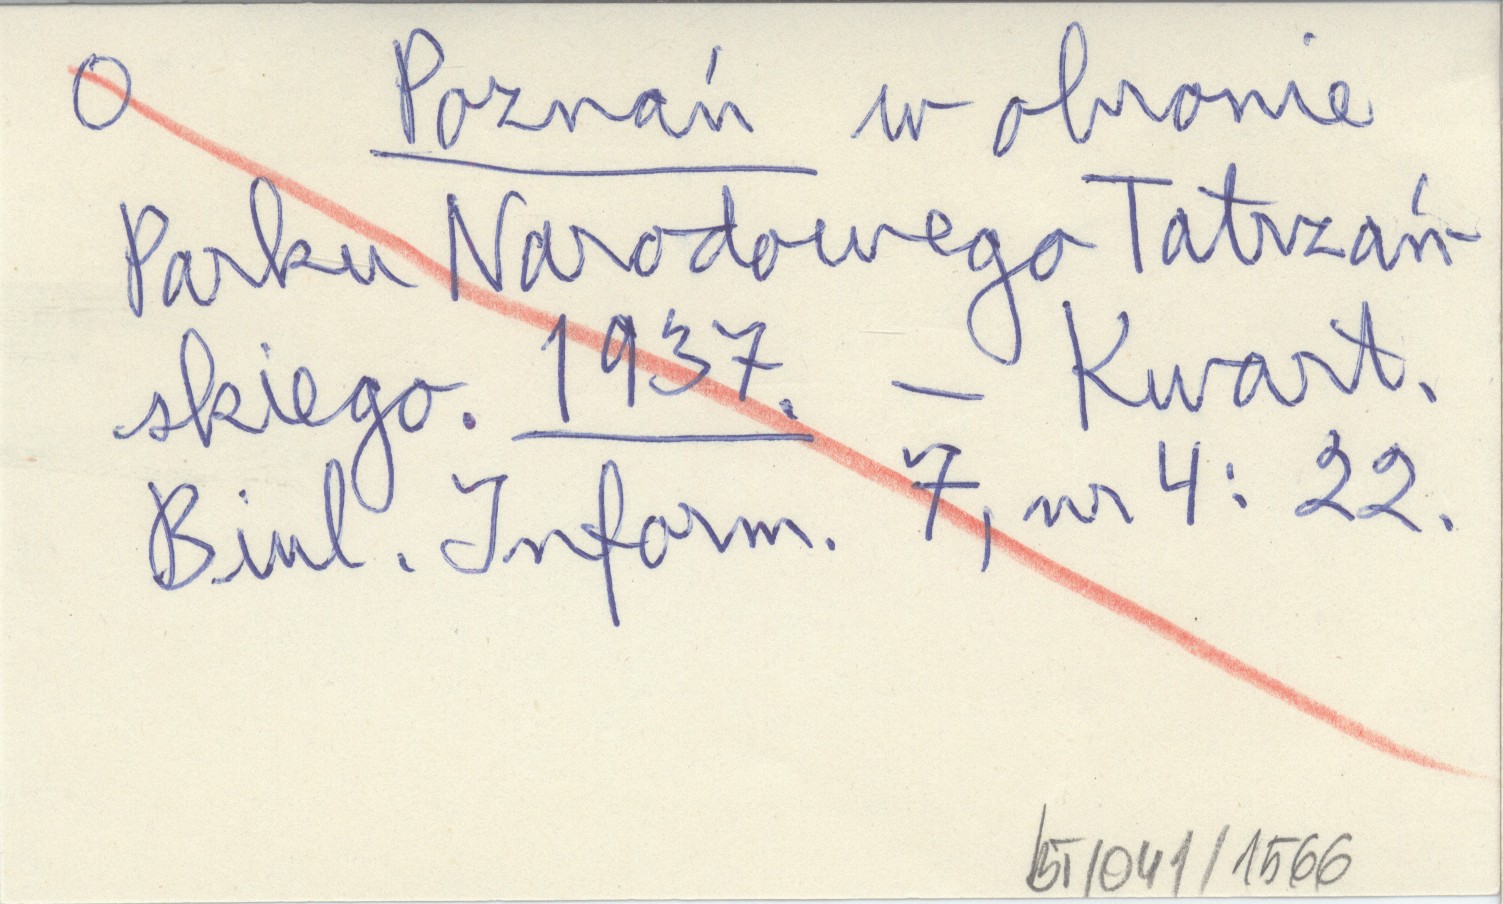 O Poznań w obronie
Parku Narodowego Tatrzań-
skiego. 1937. – Kwart.
Biul. Inform. 7, nr 4: 22.
/041/1566